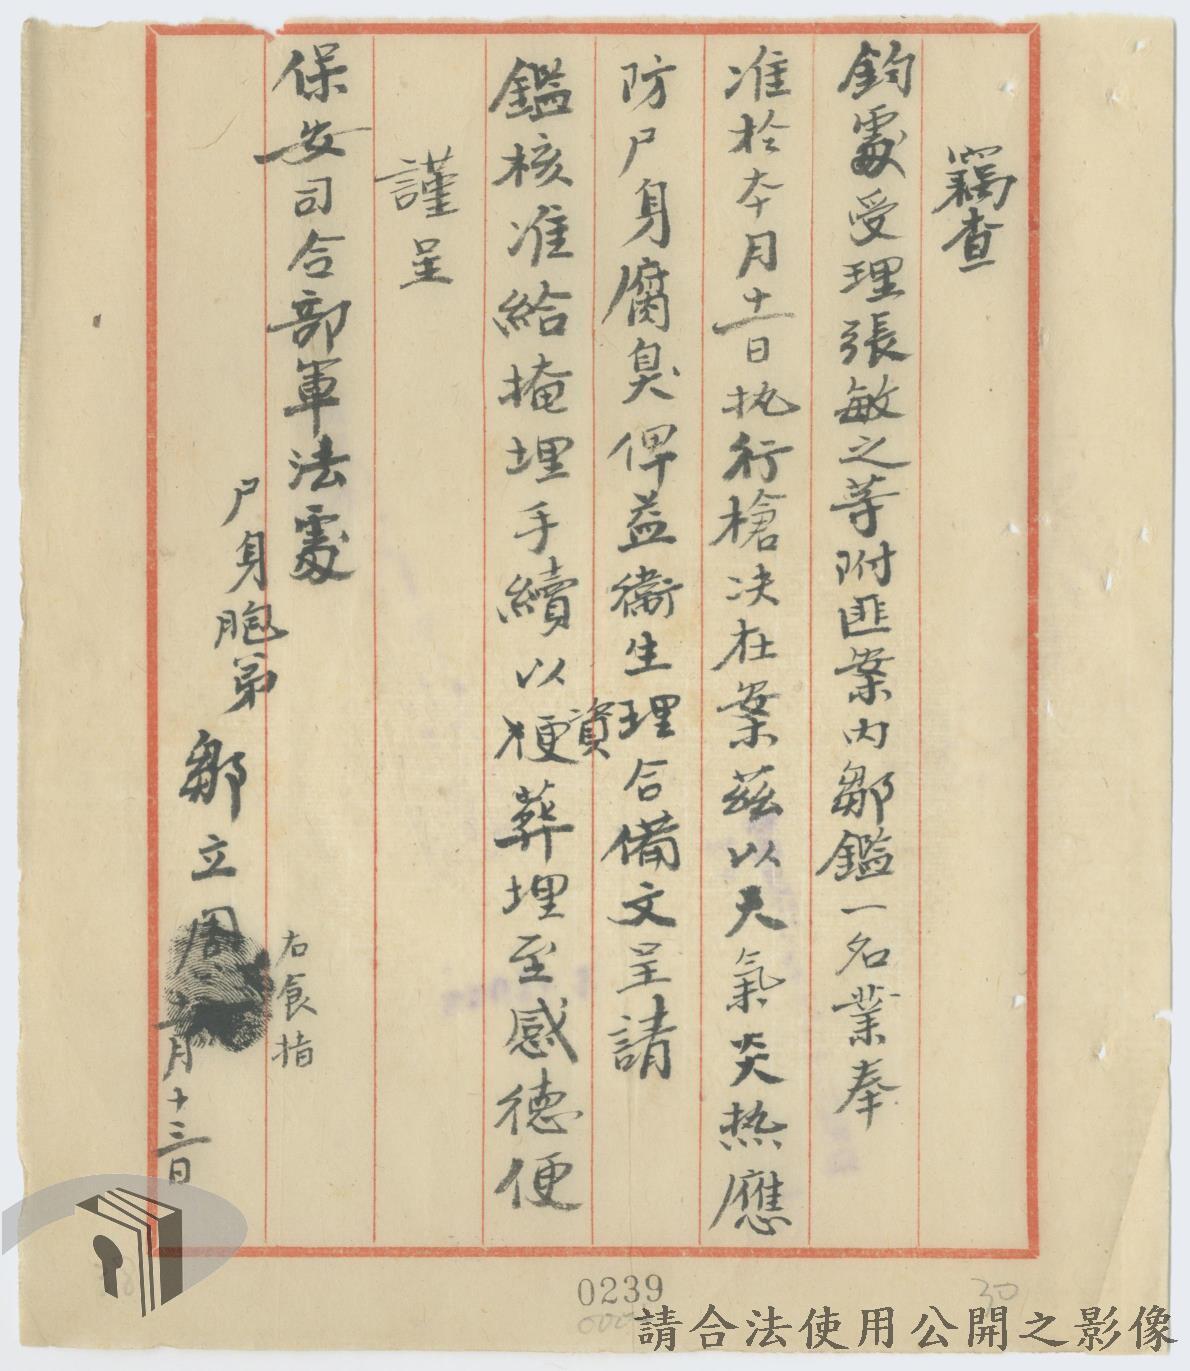 竊查
鈞處受理張敏之等附匪案內鄒鑑一名業奉
准於本月十一日执行槍决在案茲以天氣炎热應
防尸身腐臭俾益衞生理合備文呈請
鑑核准給掩埋手續以資便葬埋至感德便
謹呈
保安司令部軍法處
尸身胞弟 鄒立周
右食指
十二月十三日
0239
30
請合法使用公開之影像